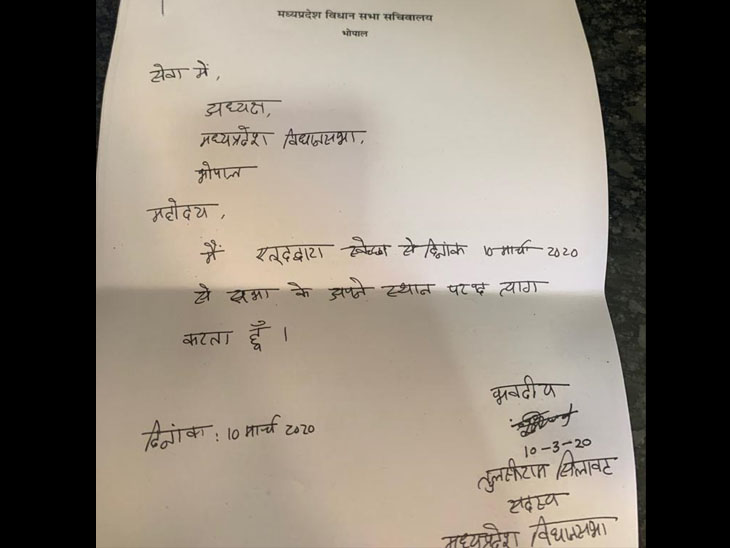 मध्यप्रदेश विधान सभा सचिवालय
भोपाल
सेवा में,
अध्यक्ष,
मध्यप्रदेश विधानसभा,
भोपाल
महोदय,
मैं एतद्द्वारा स्वेच्छा से दिनांक 10 मार्च 2020
से सभा के अपने स्थान का त्याग
करता हूँ ।
भवदीय
10-3-20
दिनांक : 10 मार्च 2020
तुलसीराम सिलावट
सदस्य
मध्यप्रदेश विधानसभा